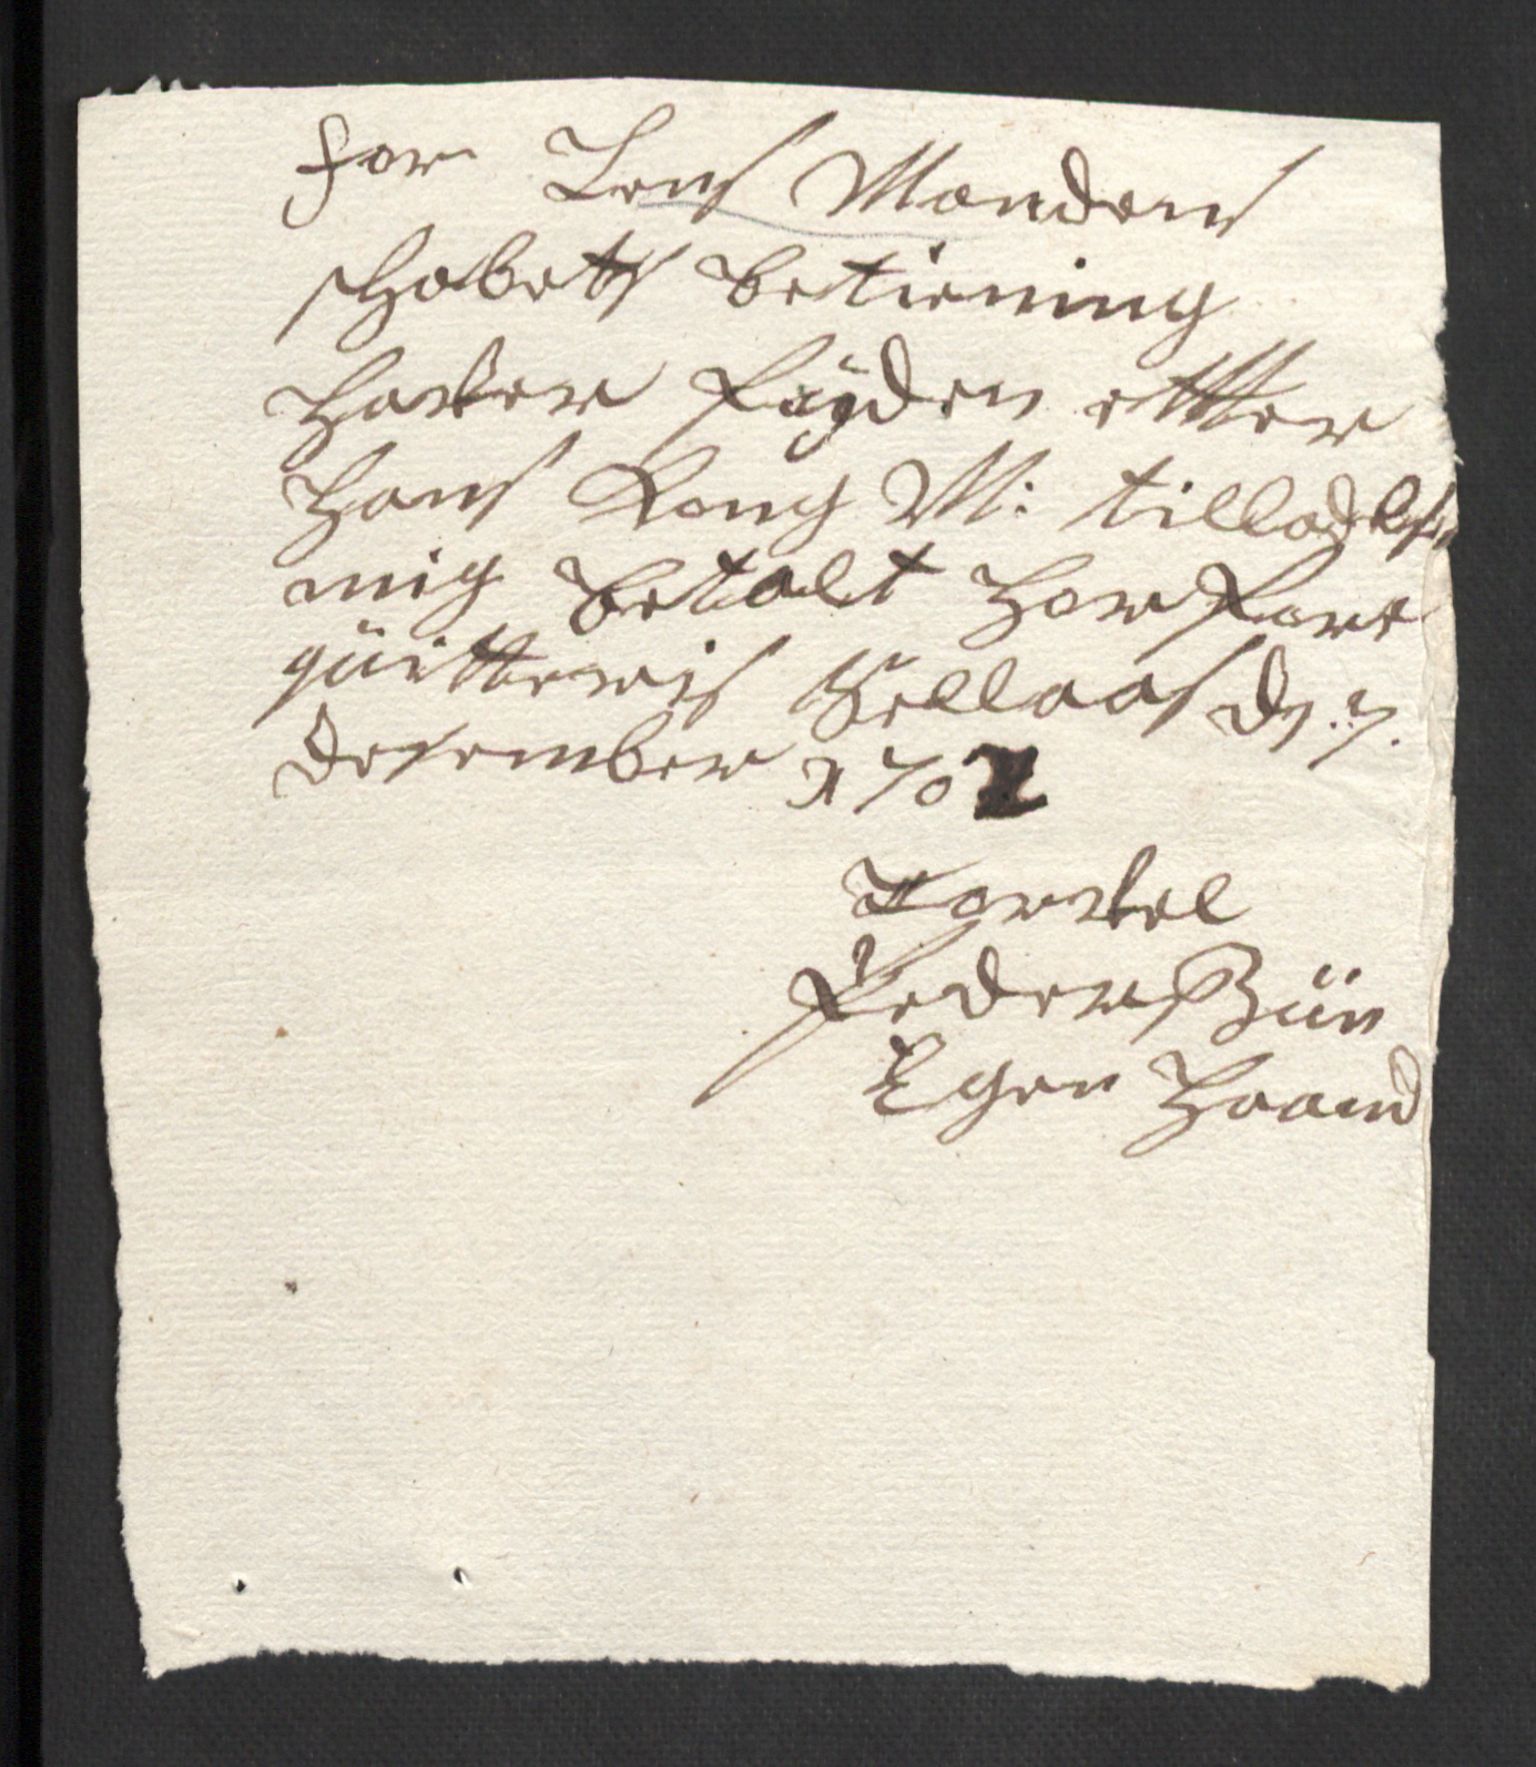 for Lens Mandens
schabets betiening
Hafuer fougden etter
Hans Kong M: tilladelse
mig betalt Hor fore
quitteris Sellaas ds. 7.
desember 1702
Torkel
Pedersßøn
Egen Haand